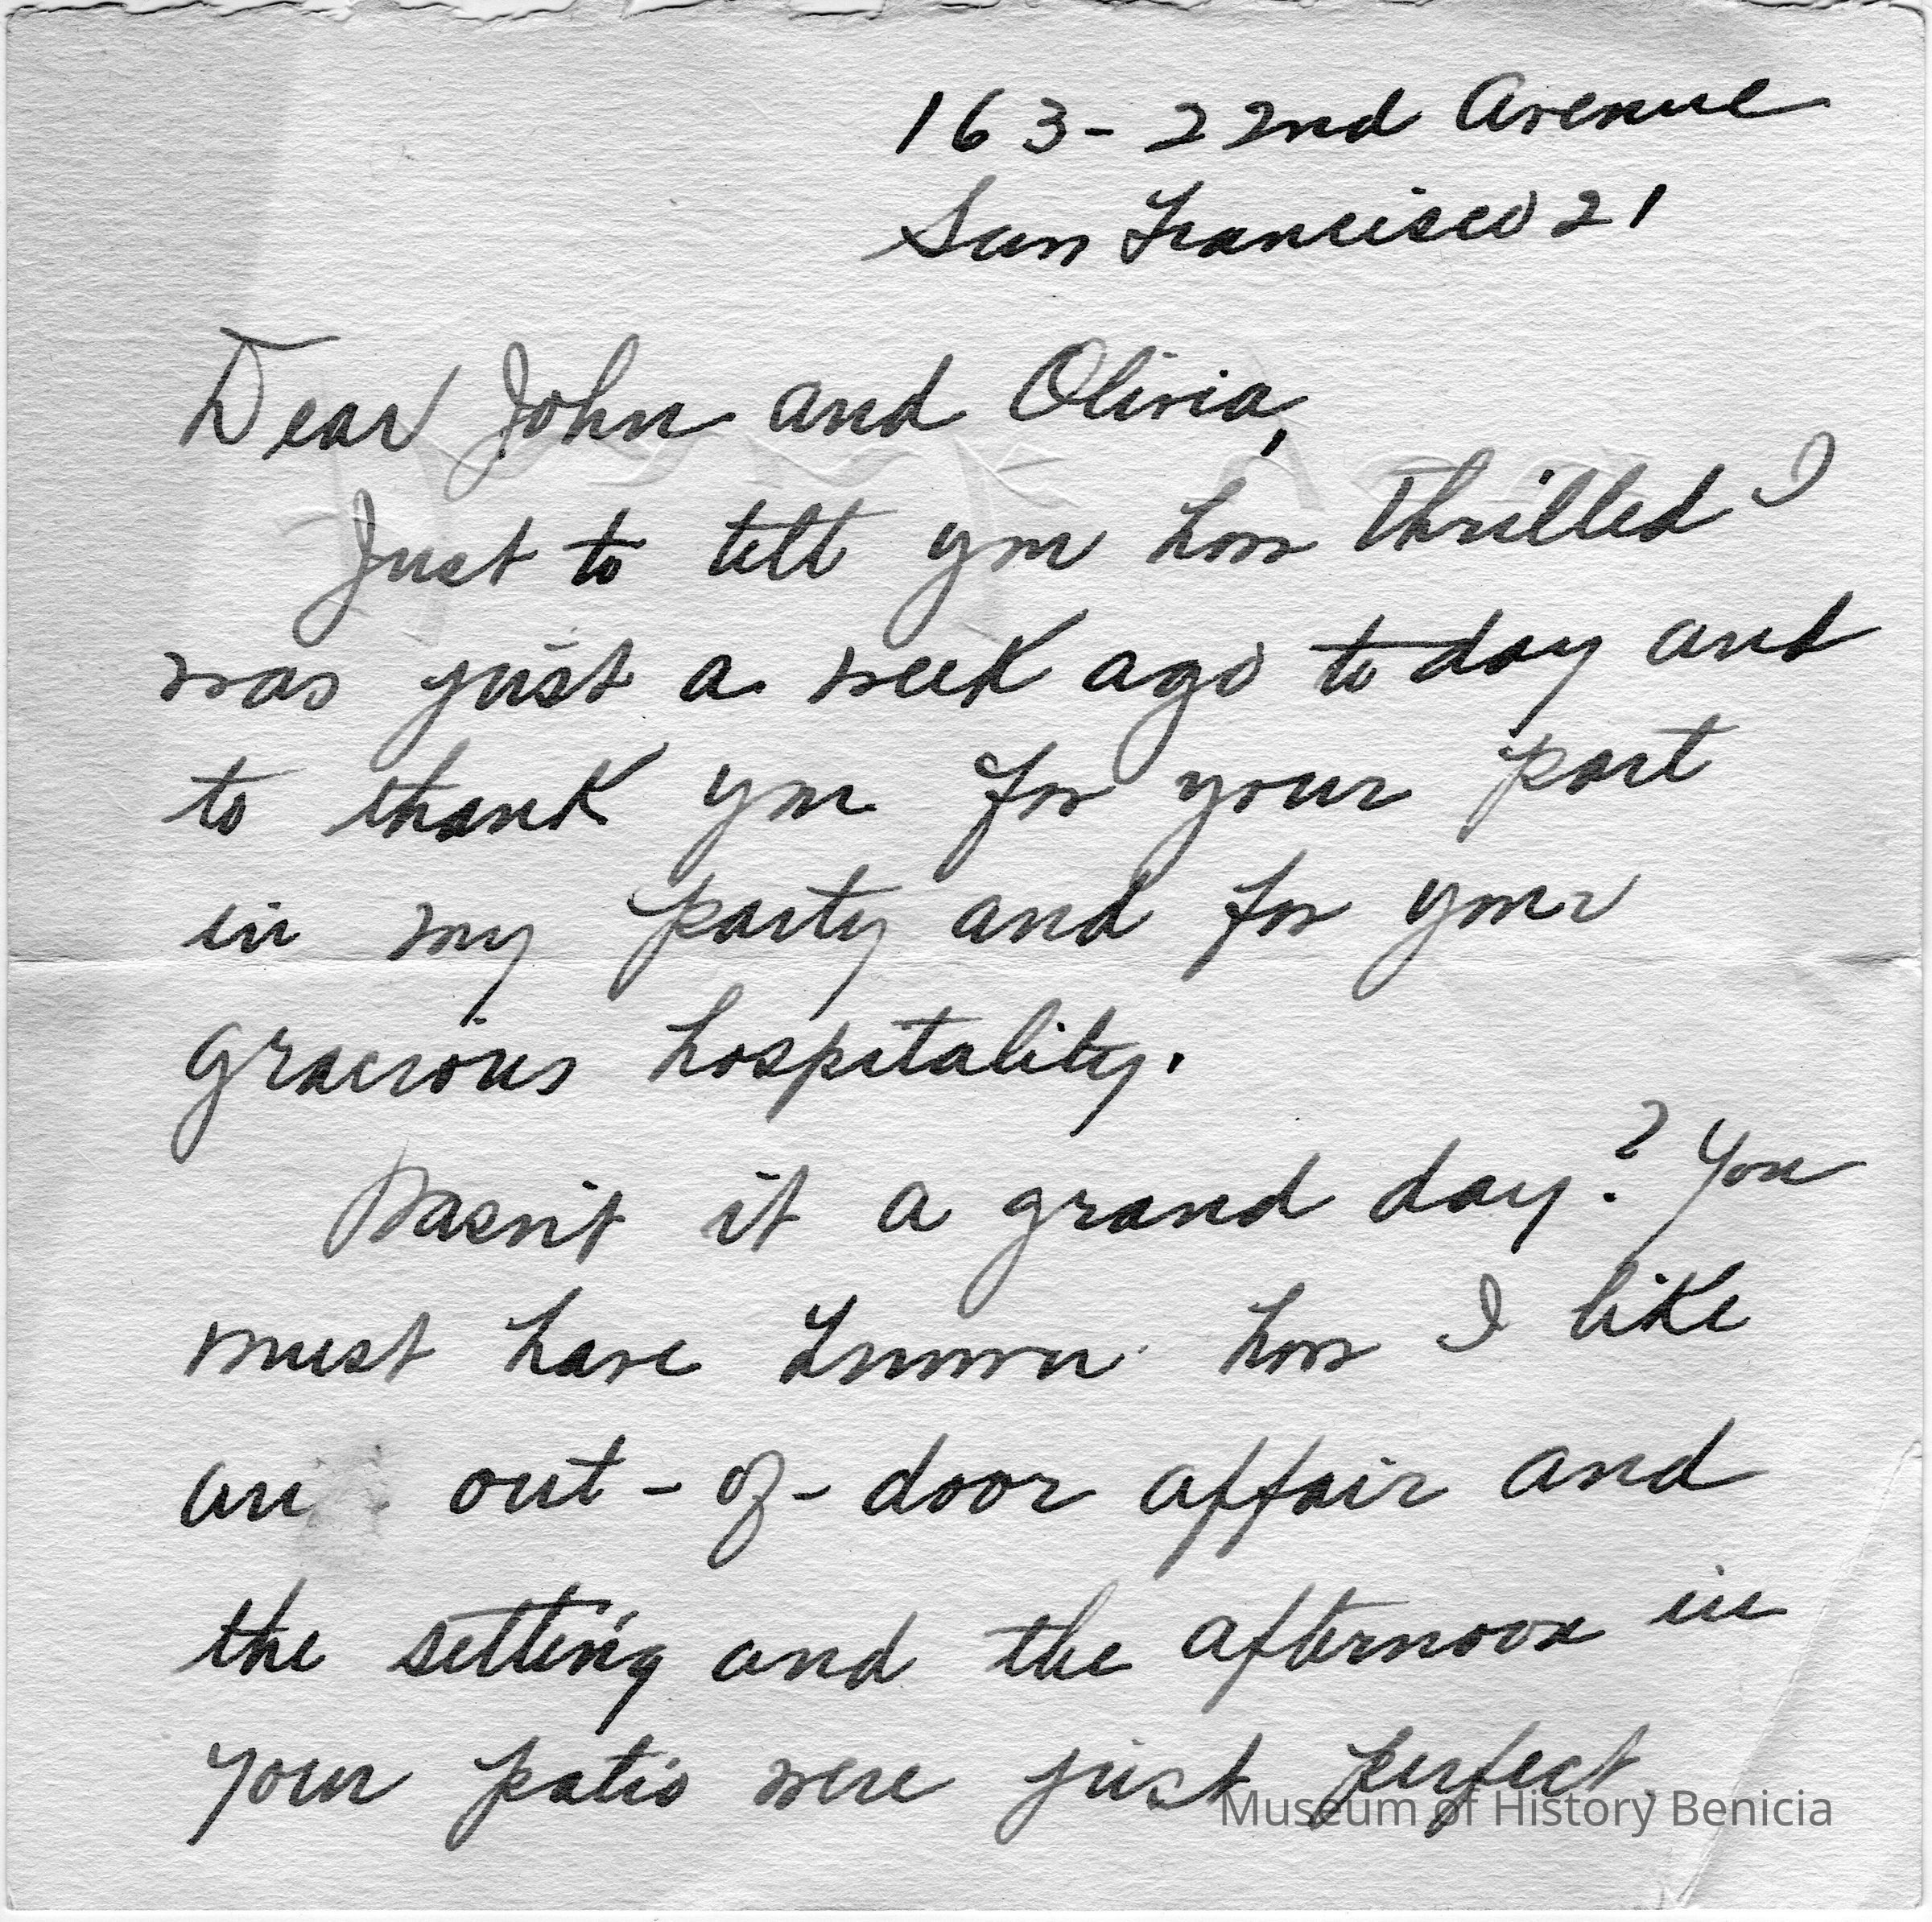 163 - 22nd Avenue
San Francisco 21
Dear John and Olivia,
Just to tell you how thrilled I
was just a week ago to day and
to thank you for your part
in my party and for your
gracious hospitality.
Wasn't it a grand day? You
must have known how I like
an out-of-door affair and
the setting and the afternoon in
your patio were just perfect.
Museum of History Benicia